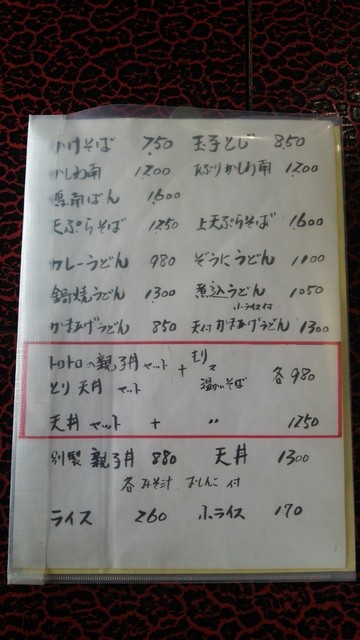 かけそば 750 玉子とじ 850
かしわ南 1200 天ぷりかしわ南 1200
鴨南ばん 1600
天ぷらそば 1250 上天ぷらそば 1600
カレーうどん 980 ぞうにうどん 1100
鍋焼うどん 1300 煮込うどん 1050
小ライス付
かまあげうどん 850 天付かまあげうどん 1300
トロトロの親子丼セット + もり
とり天丼 セット 温かいそば 各980
天丼 セット + 〃 1250
別製 親子丼 880 天丼 1300
各みそ汁 おしんこ付
ライス 260 小ライス 170